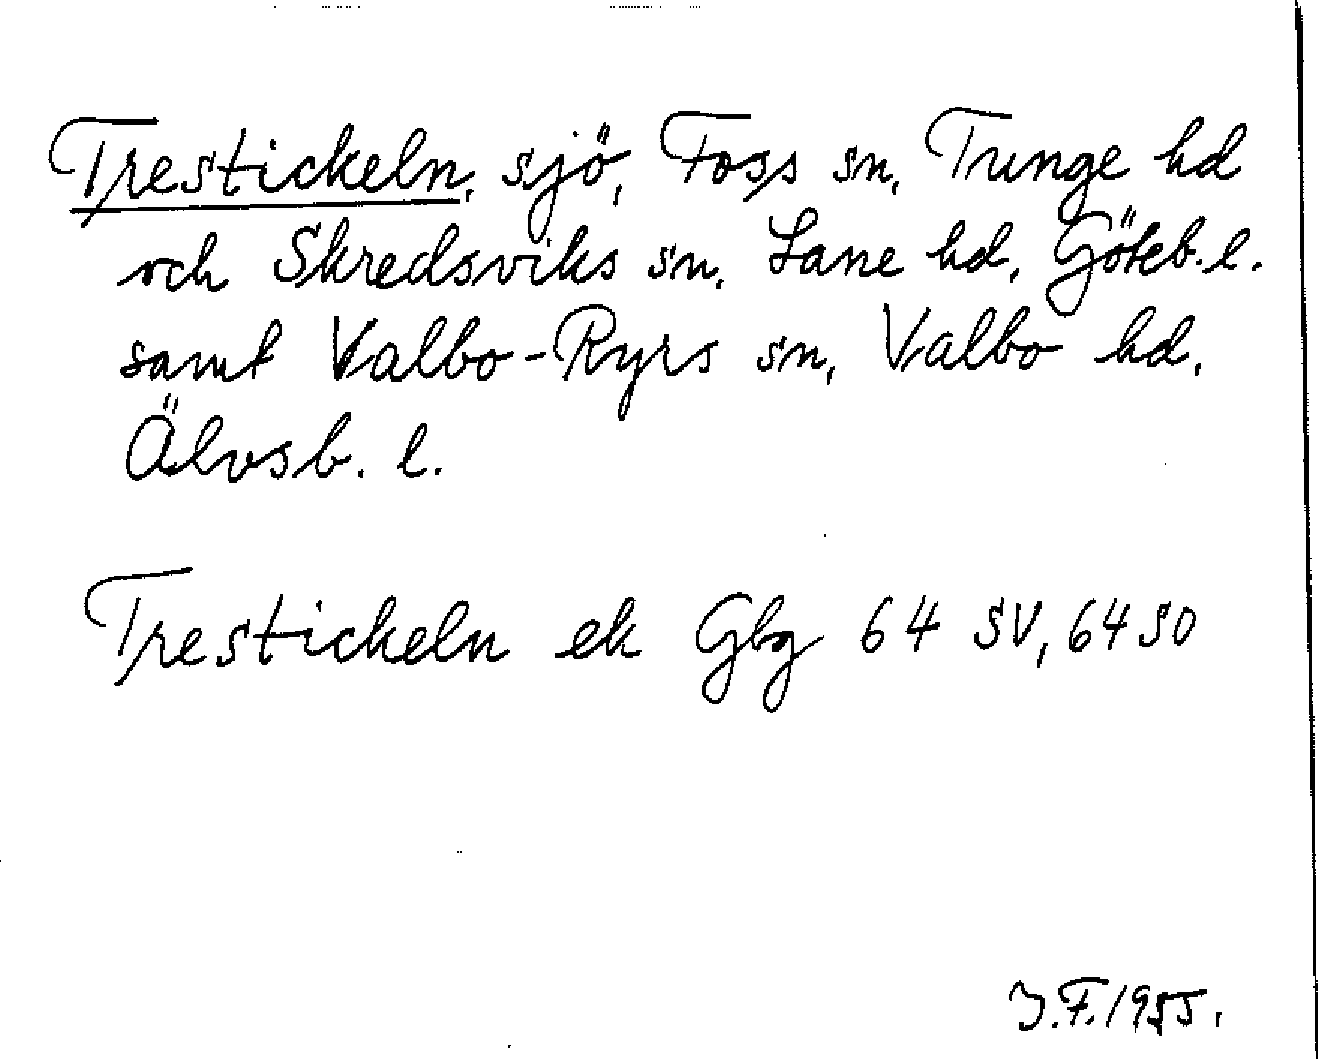 Trestickeln, sjö, Foss sn, Tunge hd
och Skredsviks sn, Lane hd, Göteb. l.
samt Valbo-Ryrs sn, Valbo hd,
Älvsb. l.
Trestickeln ek Gbg 64 SV, 64 SO
J.F. 1955.